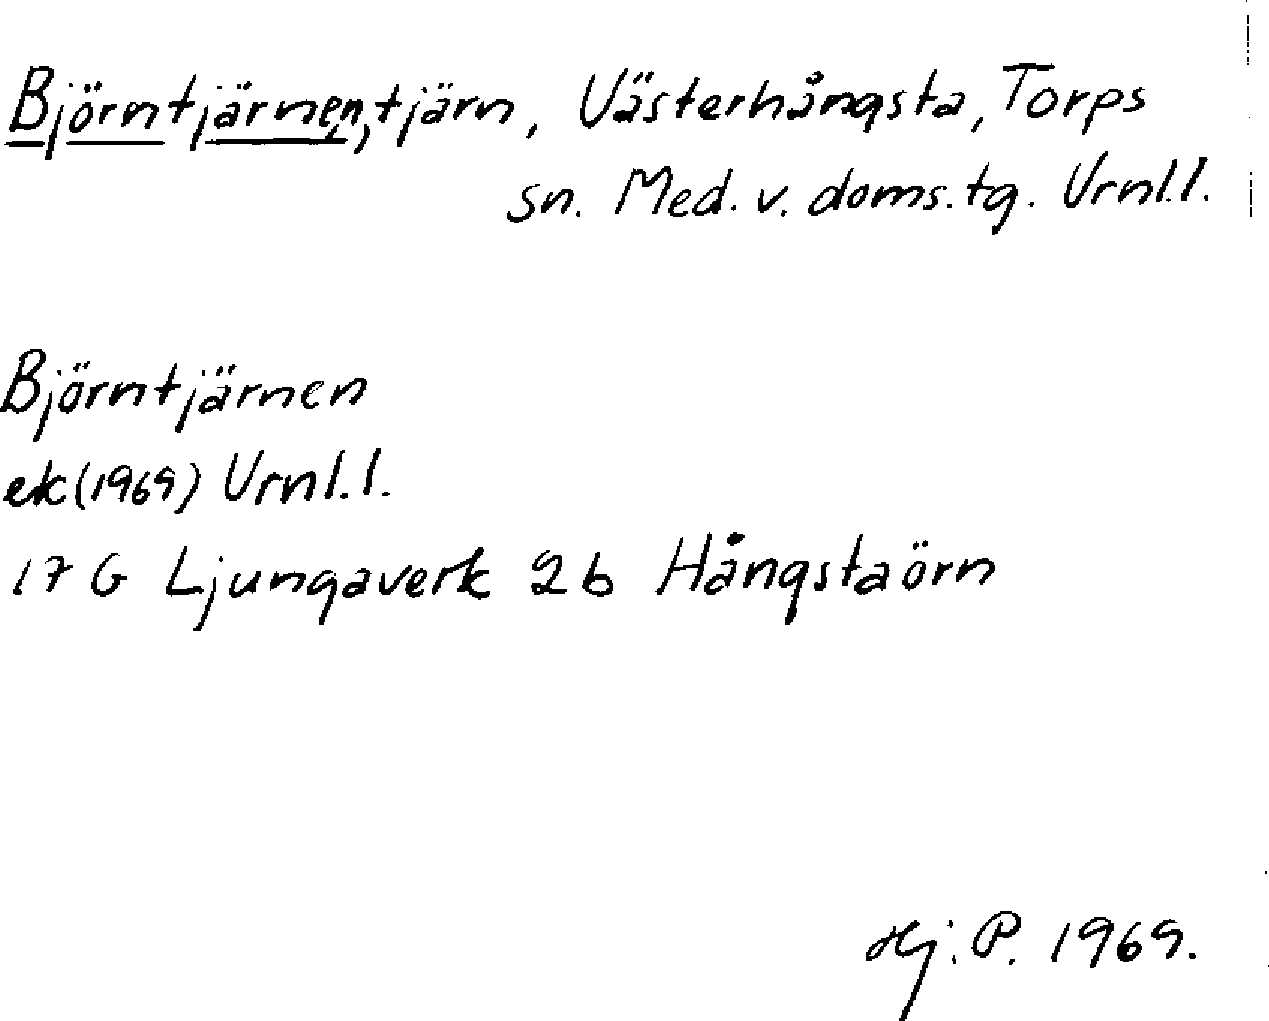 Björntjärnen, tjärn, Västerhångsta, Torps
sn. Med. v. doms. tg. Vrnl.l.
Björntjärnen
ek (1969) Vrnl.l.
17 G Ljungaverk 2b Hångstaörn
Hj. P. 1969.